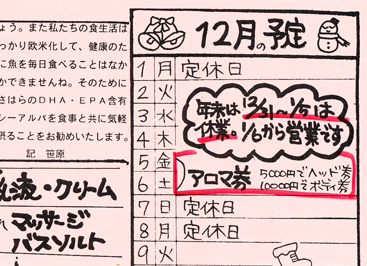 ょう。また私たちの食生活は
っかり欧米化して、健康のた
に魚を毎日食べることはなか
かできませんね。そのために
さはらのDHA・EPA含有
シーアルパを食事と共に気軽
摂ることをお勧めいたします。
記 笹原
乳液・クリーム
マッサージ
バスソルト
12月の予定
1 月 定休日
2 火
3 水
4 木
5 金
6 土
7 日 定休日
8 月 定休日
9 火
年末は12/31~1/5は
休業。1/6から営業です
アロマ券 5000円でヘッド券
10000円でボディ券